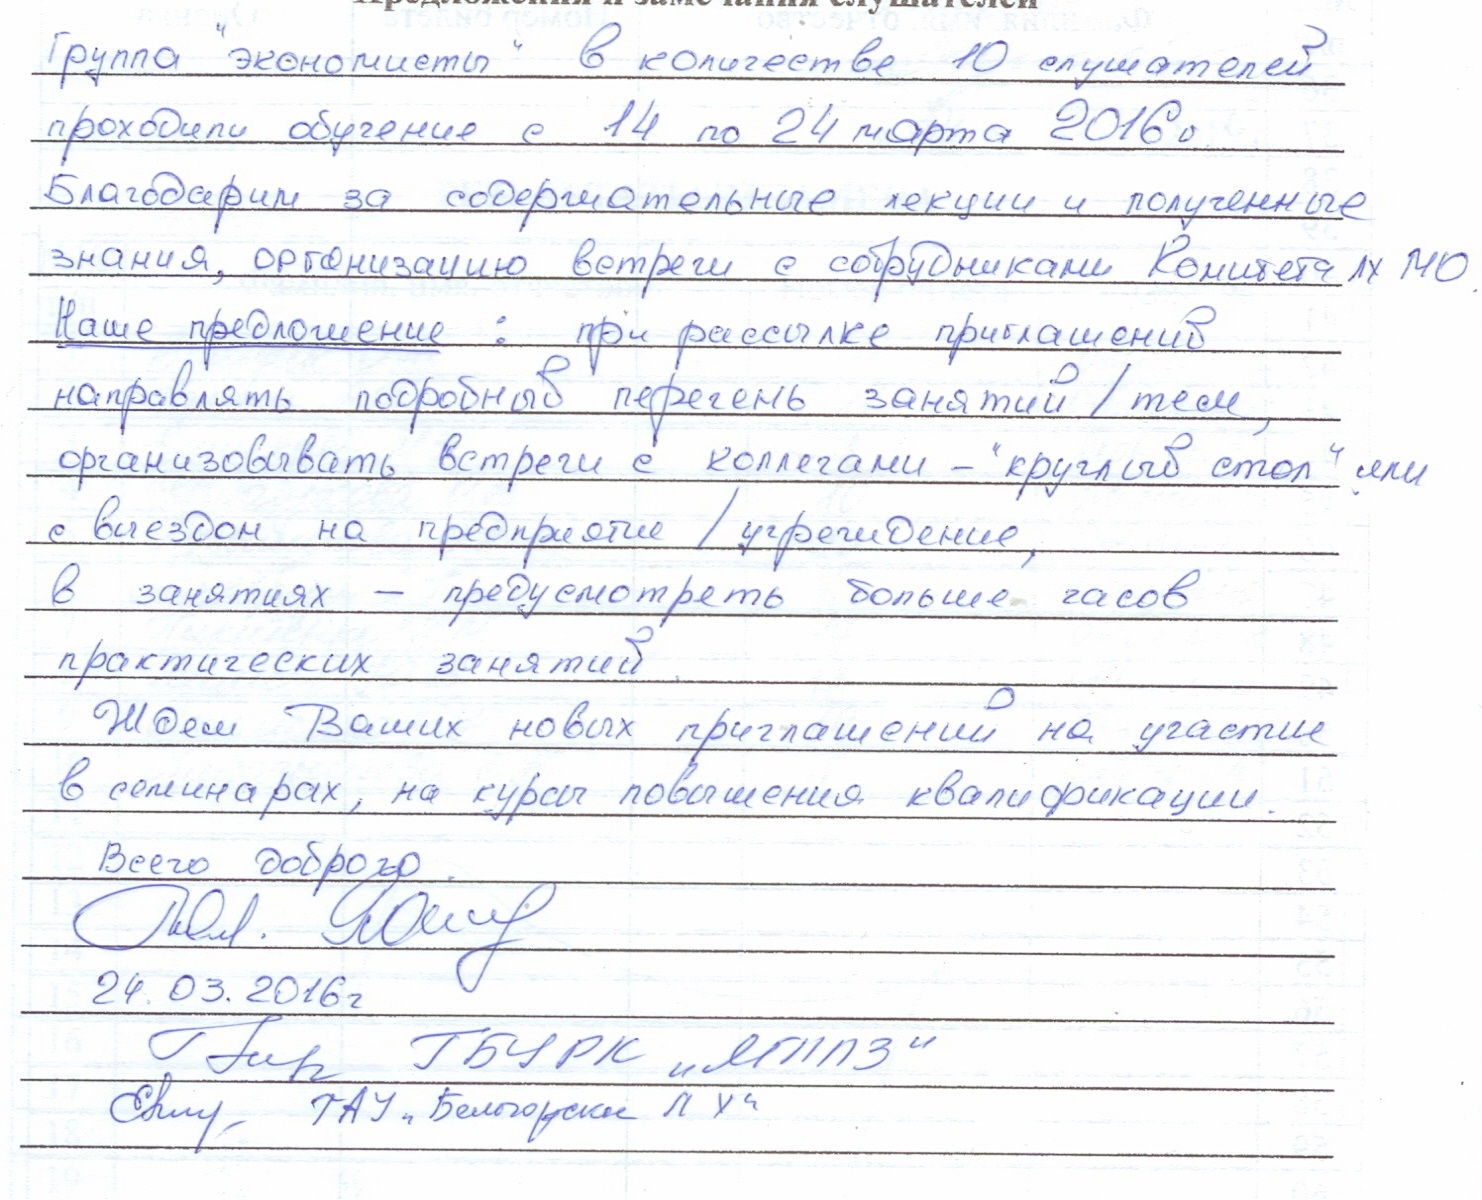 Предложения и замечания слушателей
Группа "экономисты" в количестве 10 слушателей
проходили обучение с 14 по 24 марта 2016г.
Благодарим за содержательные лекции и полученные
знания, организацию встречи с сотрудниками Комитета ЛХ МО.
Наше предложение : при рассылке приглашений
направлять подробный перечень занятий / тем,
организовывать встречи с коллегами – "круглый стол" или
с выездом на предприятие / учреждение,
в занятиях – предусмотреть больше часов
практических занятий.
Ждем Ваших новых приглашений на участие
в семинарах, на курсы повышения квалификации.
Всего доброго.
24.03.2016г
ГБУ РК „ЯГППЗ"
ГАУ „Белогорское ЛХ"